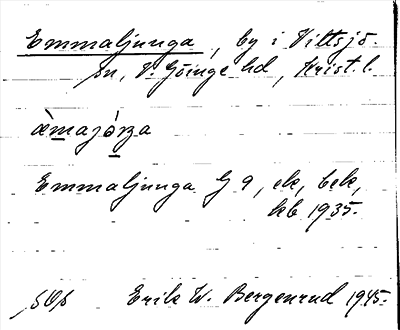 Emmaljunga, by i Vittsjö
sn, V. Göinge hd, Krist. l.
àmajóŋa
Emmaljunga G 9, ek, bek,
kb 1935.
Erik W. Bergenrud 1945.